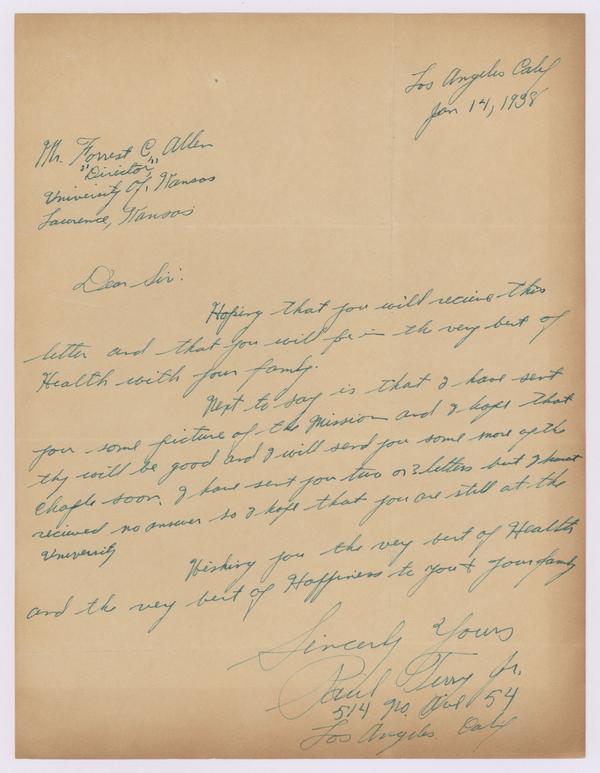 Los Angeles Calif
Jan 14, 1938
Mr. Forrest C. Allen
"Director"
Univercity Of, Kansas
Lawrence, Kansas
Dear Sir:
Hoping that you will recieve this
letter and that you will be in the very best of
Health with your family.
Next to say is that I have sent
you some picture of the Mission and I hope that
thy will be good and I will send you some more of the
Chaple soon. I have sent you two or 3 letters but I havent
recieved no answer so I hope that you are still at the
Univercity
Wishing you the very best of Health
and the very best of Happiness to You & your family
Sincerly Yours
Paul Terry Jr.
514 No. Ave 54
Los Angeles Calif